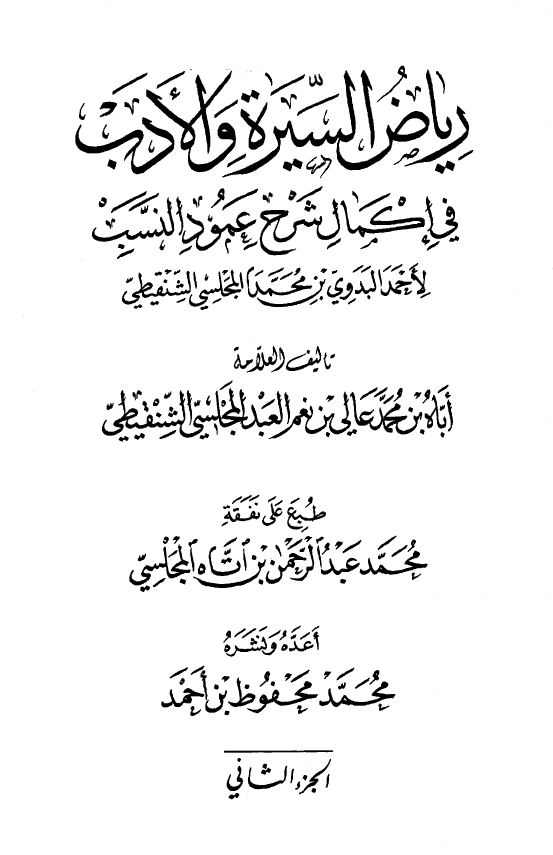 رِيَاضُ السِّيرَةِ وَالْأَدَبْ
فِي إِكْمَالِ شَرْحِ عَمُودِ النَّسَبِ
لِأَحْمَدَ الْبَدَوِيِّ بْنِ مُحَمَّدَا الْمَجْلِسِيِّ الشِّنْقِيطِيِّ
تأليف العلّامة
أَبَّاهُ بْنُ مُحَمَّدْ عَالِي بْنِ نِعْمَ الْعَبْدُ الْمَجْلِسِيِّ الشِّنْقِيطِيِّ
طُبِعَ عَلَى نَفَقَةِ
مُحَمَّد عَبْدُ الرَّحْمٰنِ بْن اتَّاه الْمَجْلِسِيِّ
أَعَدَّهُ وَنَشَرَهُ
مُحَمَّدْ مَحْفُوظ بْنُ أَحْمَد
الجزء الثاني